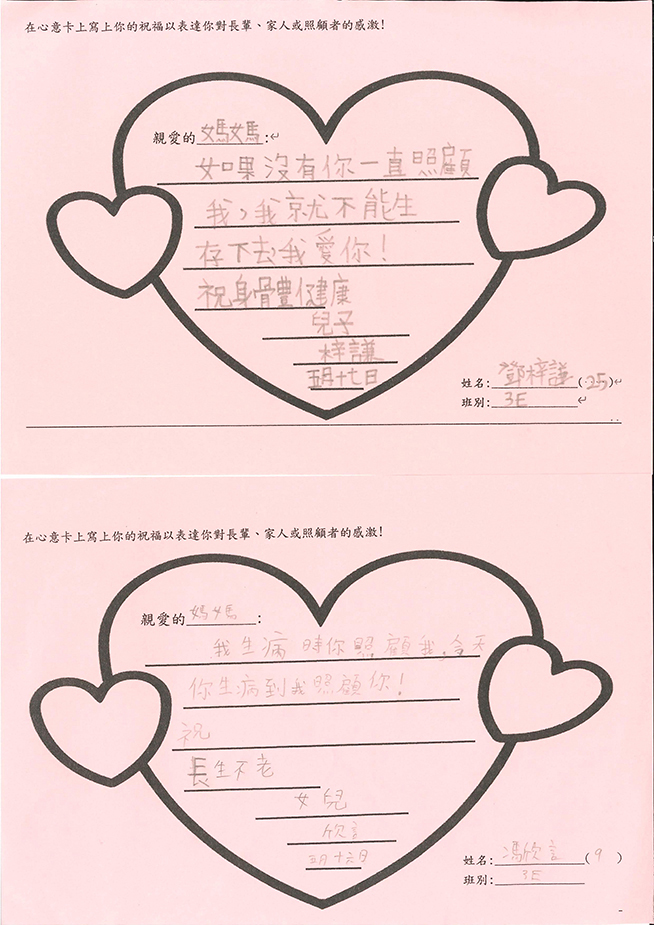 在心意卡上寫上你的祝福以表達你對長輩、家人或照顧者的感激!
親愛的媽媽:
如果沒有你一直照顧
我，我就不能生
存下去，我愛你!
祝身體健康
兒子
梓謙
五月十七日
姓名:鄧梓謙(25)
班別:3E
在心意卡上寫上你的祝福以表達你對長輩、家人或照顧者的感激!
親愛的媽媽:
我生病時你照顧我,今天
你生病到我照顧你!
祝
長生不老
女兒
欣言
五月十六日
姓名:馮欣言(9)
班別:3E